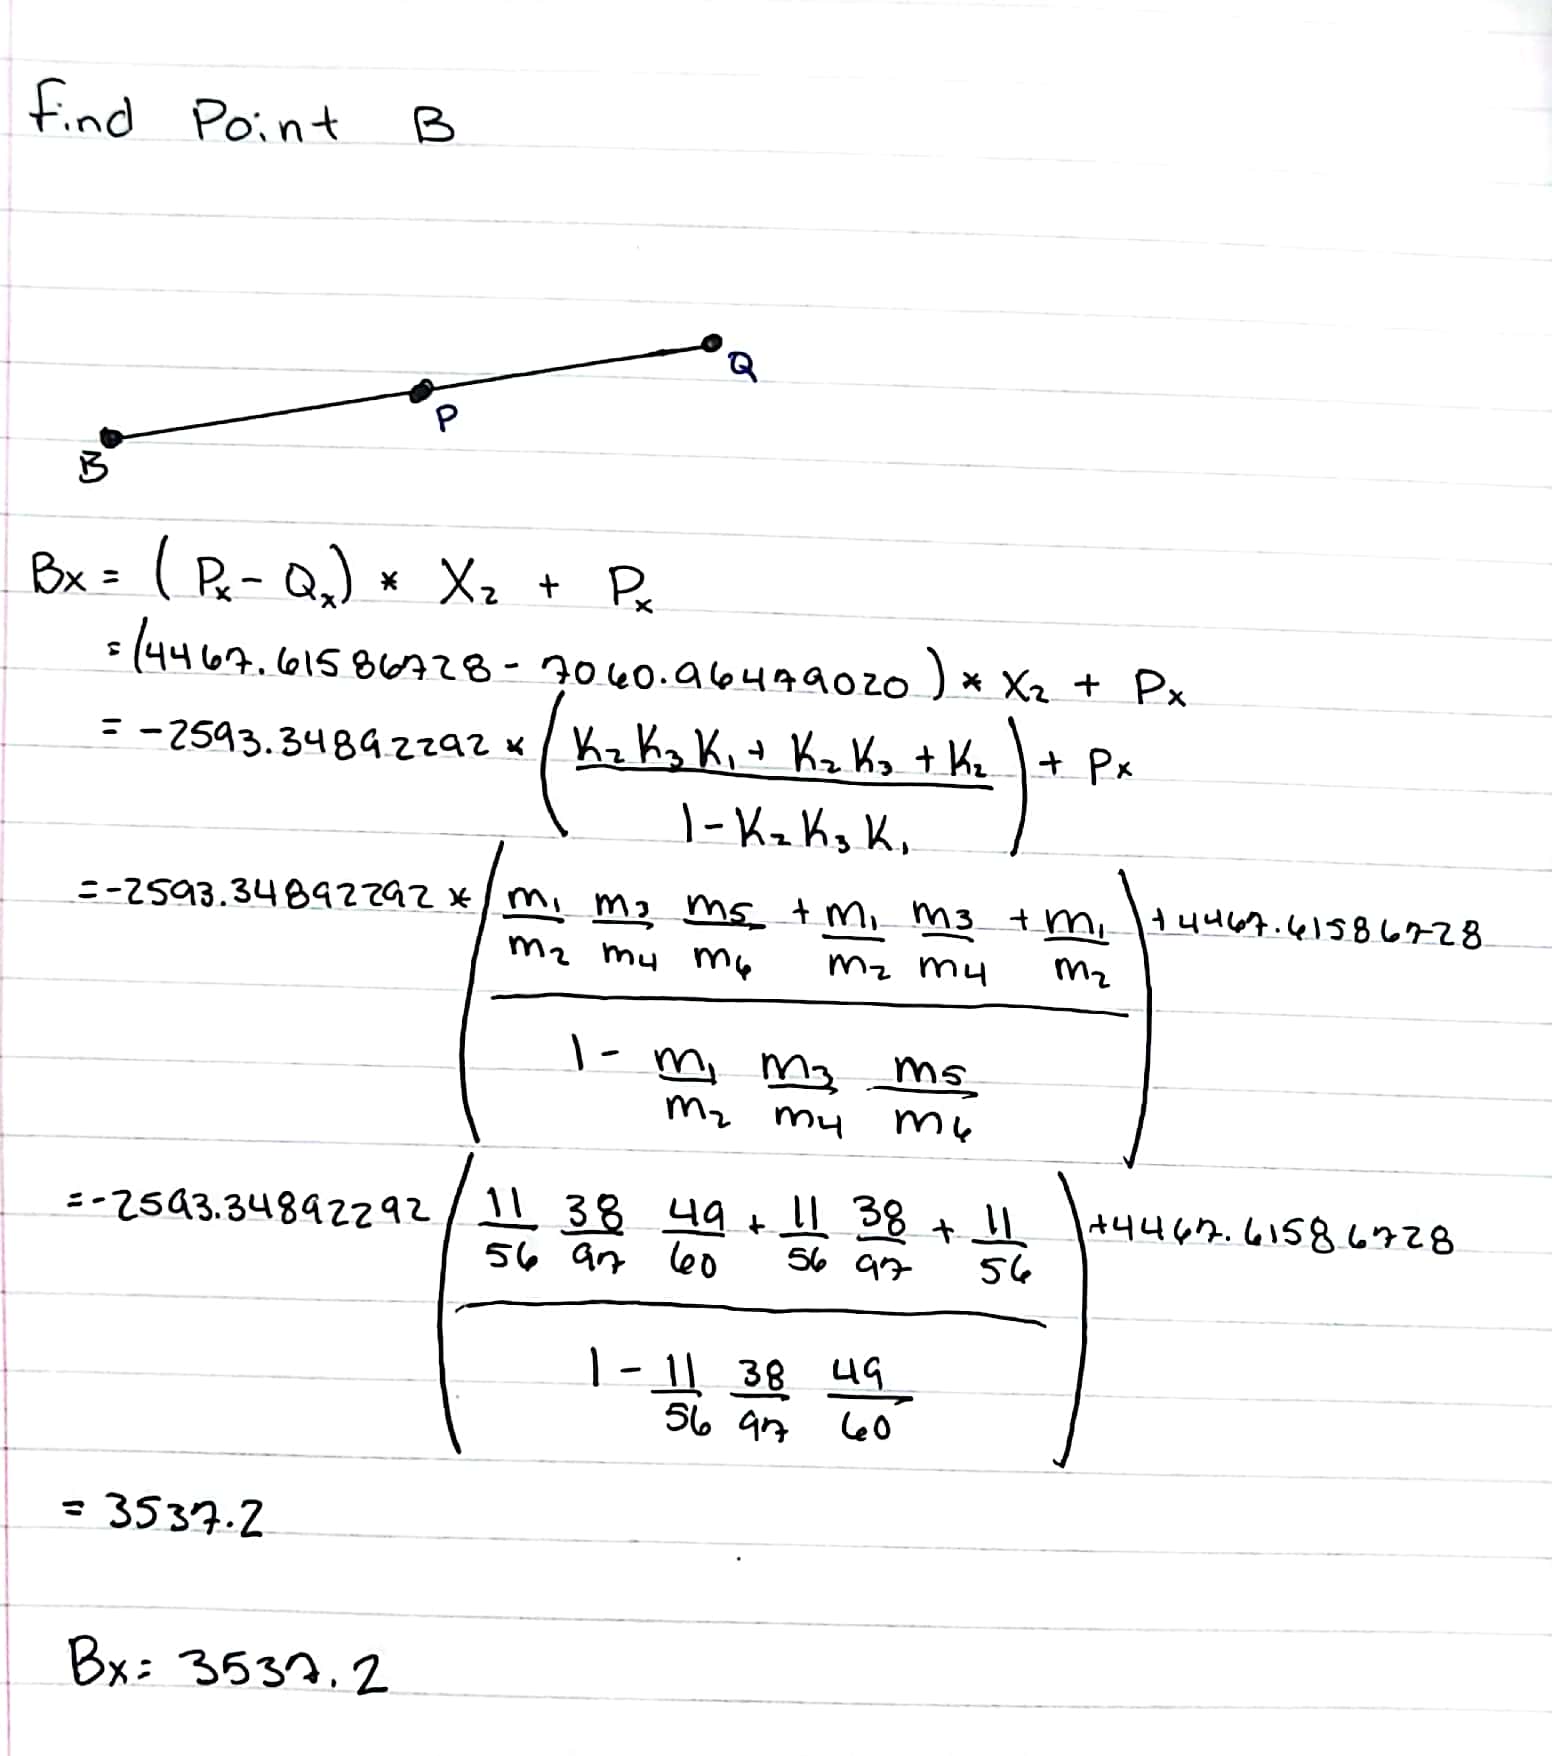 Find Point B
Q
P
B
Bx = (Px - Qx) * X2 + Px
= (4467.61586728 - 7060.96479020) * X2 + Px
= -2593.34892292 * (K2 K3 K1 + K2 K3 + K2 / 1 - K2 K3 K1) + Px
= -2593.34892292 * (m1/m2 m3/m4 m5/m6 + m1/m2 m3/m4 + m1/m2 / 1 - m1/m2 m3/m4 m5/m6) + 4467.61586728
= -2593.34892292 (11/56 38/97 49/60 + 11/56 38/97 + 11/56 / 1 - 11/56 38/97 49/60) + 4467.61586728
= 3537.2
Bx = 3537.2